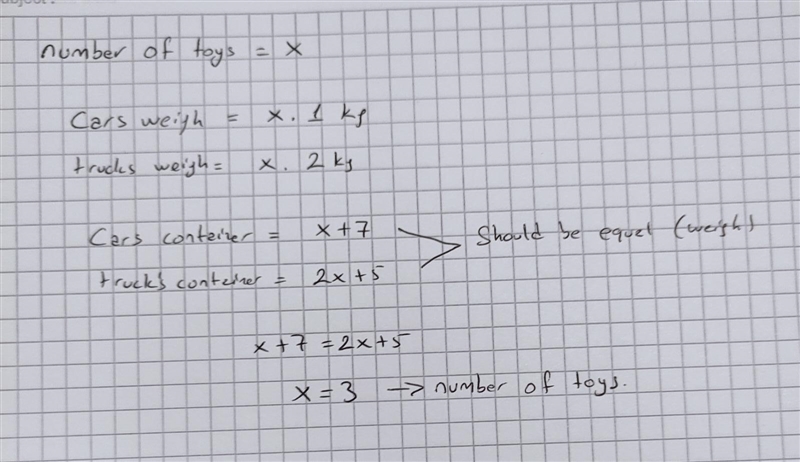 number of toys = x
Cars weigh = x . 1 kg
trucks weigh = x . 2 kg
Cars conteiner = x+7
truck's conteiner = 2x+5
Should be equal (weigh)
x+7 = 2x+5
x = 3 → number of toys.